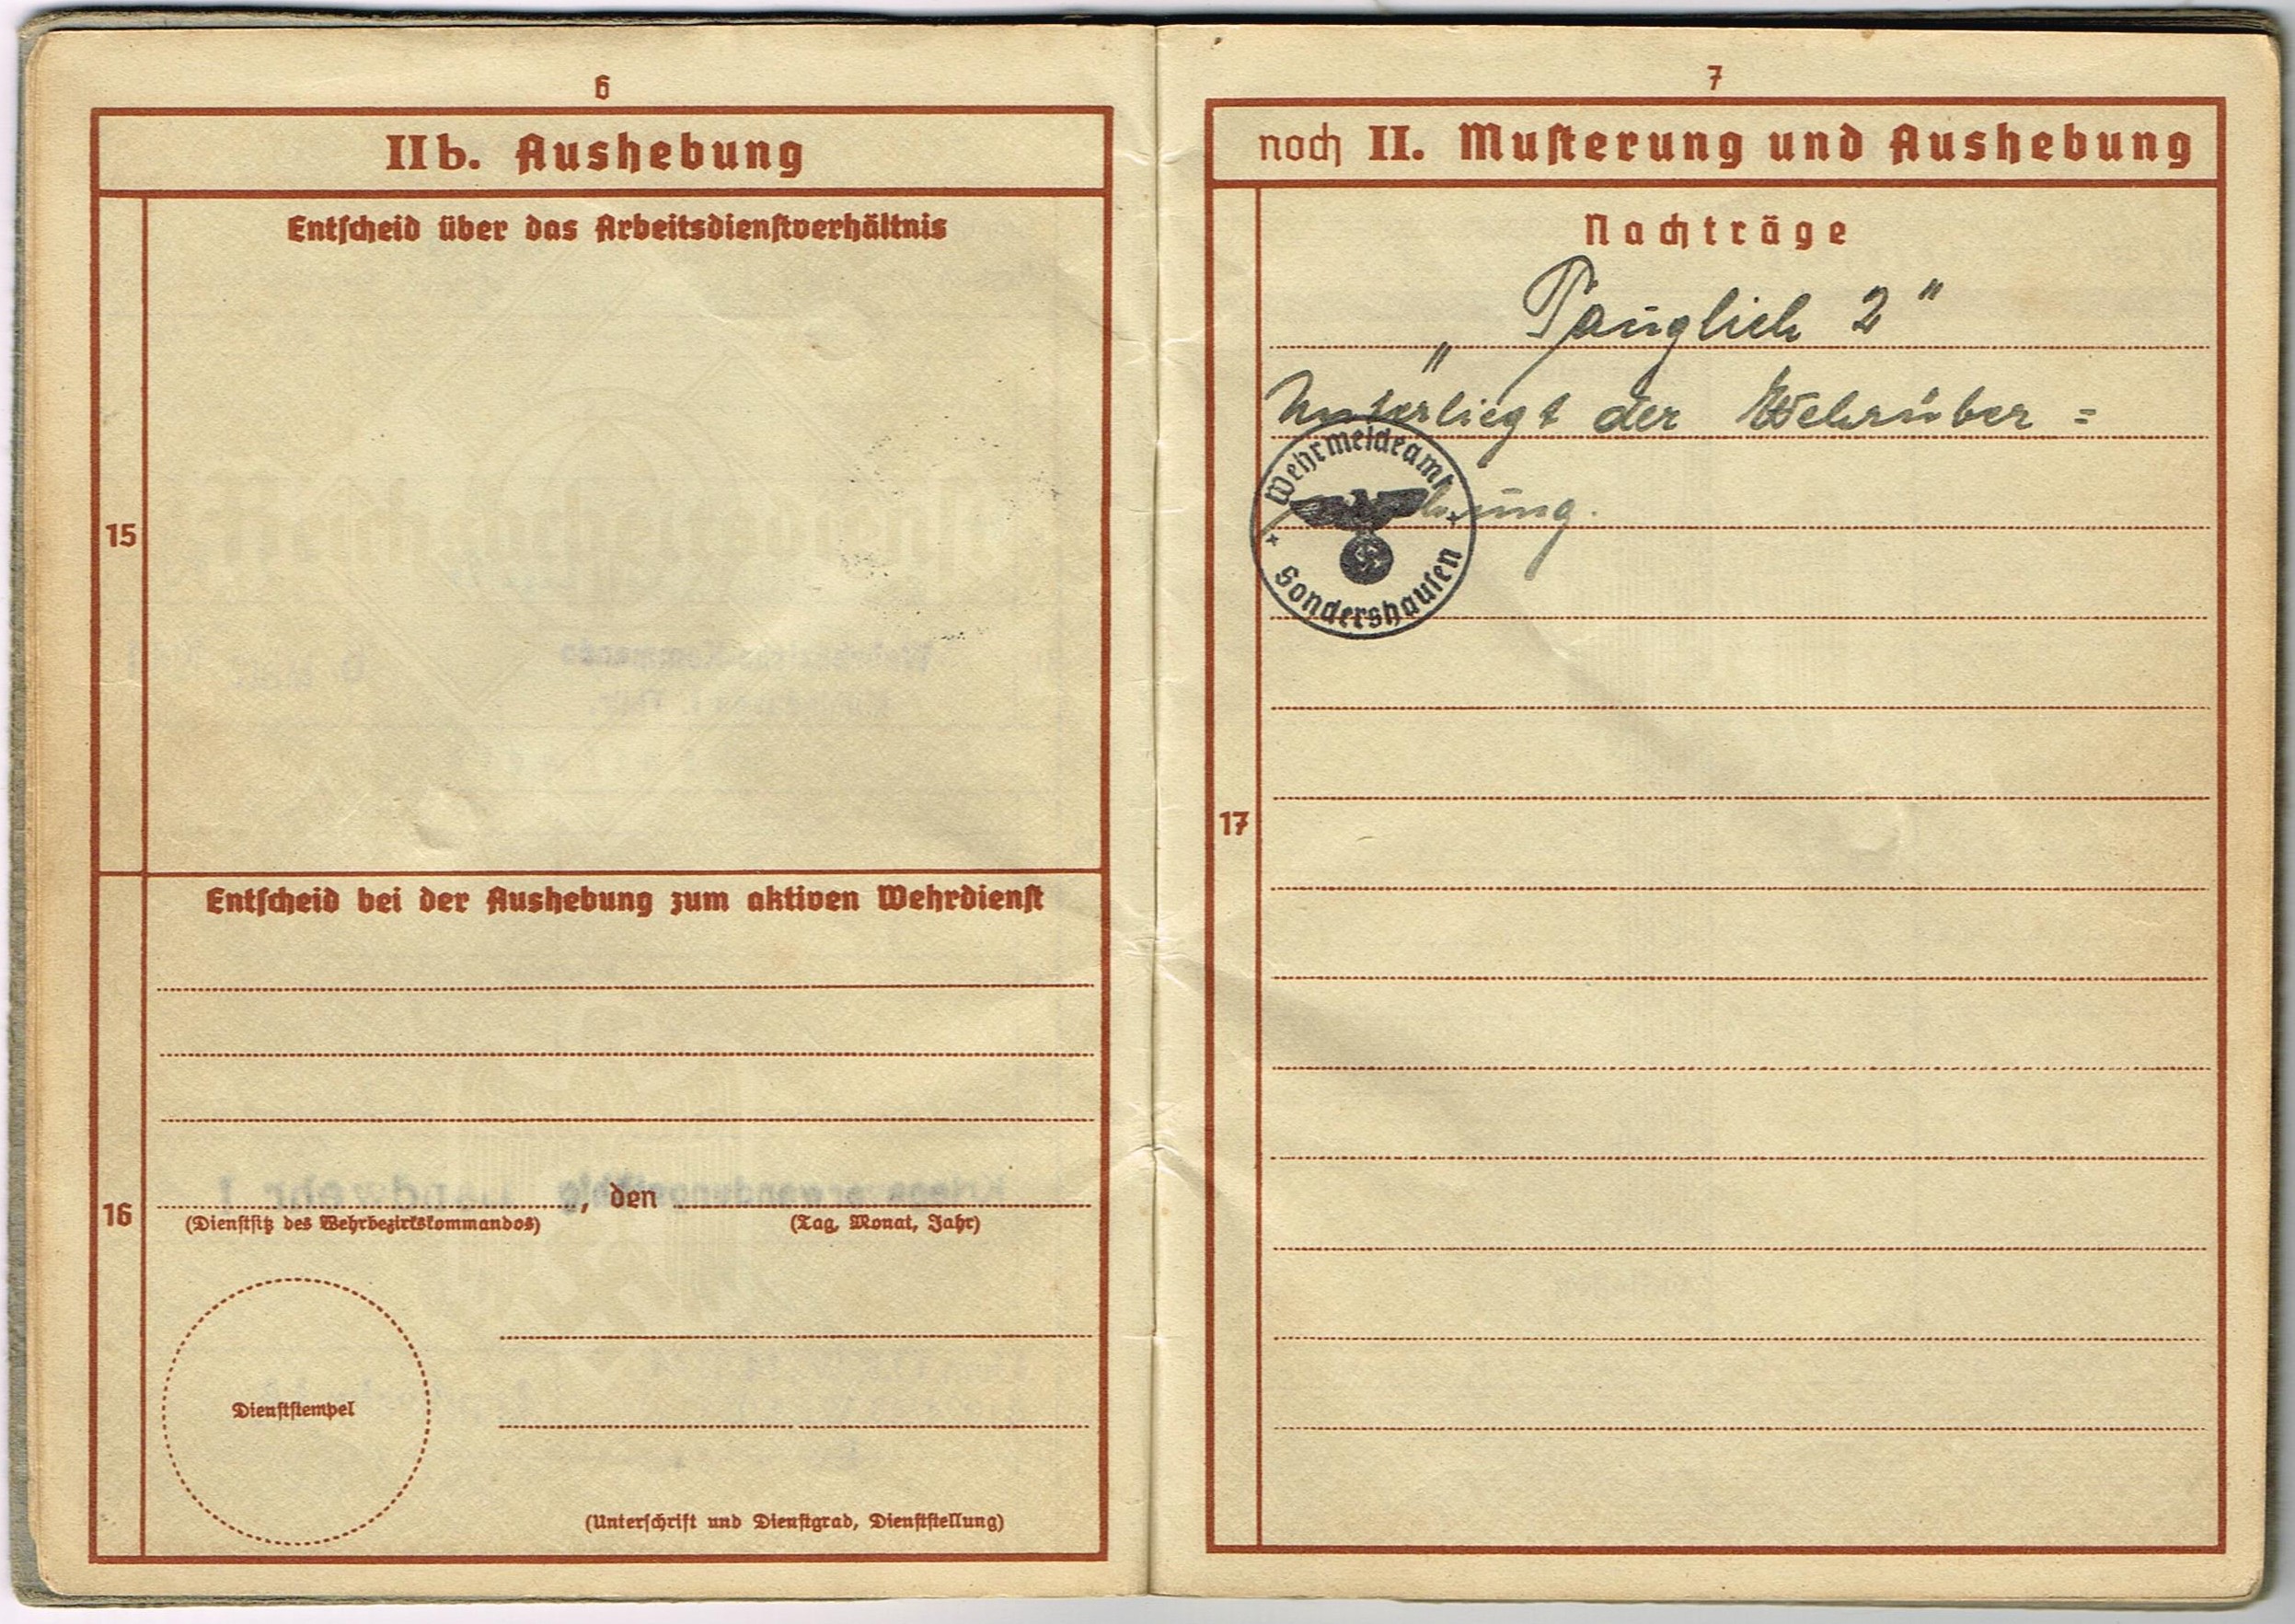 6
IIb. Aushebung
Entscheid über das Arbeitsdienstverhältnis
15
Entscheid bei der Aushebung zum aktiven Wehrdienst
16
, den
(Dienstsitz des Wehrbezirkskommandos)
(Tag, Monat, Jahr)
Dienststempel
(Unterschrift und Dienstgrad, Dienststellung)
7
noch II. Musterung und Aushebung
Nachträge
„Tauglich 2"
Unterliegt der Wehrüber=
Wehrmeldeamt
Sondershausen
17